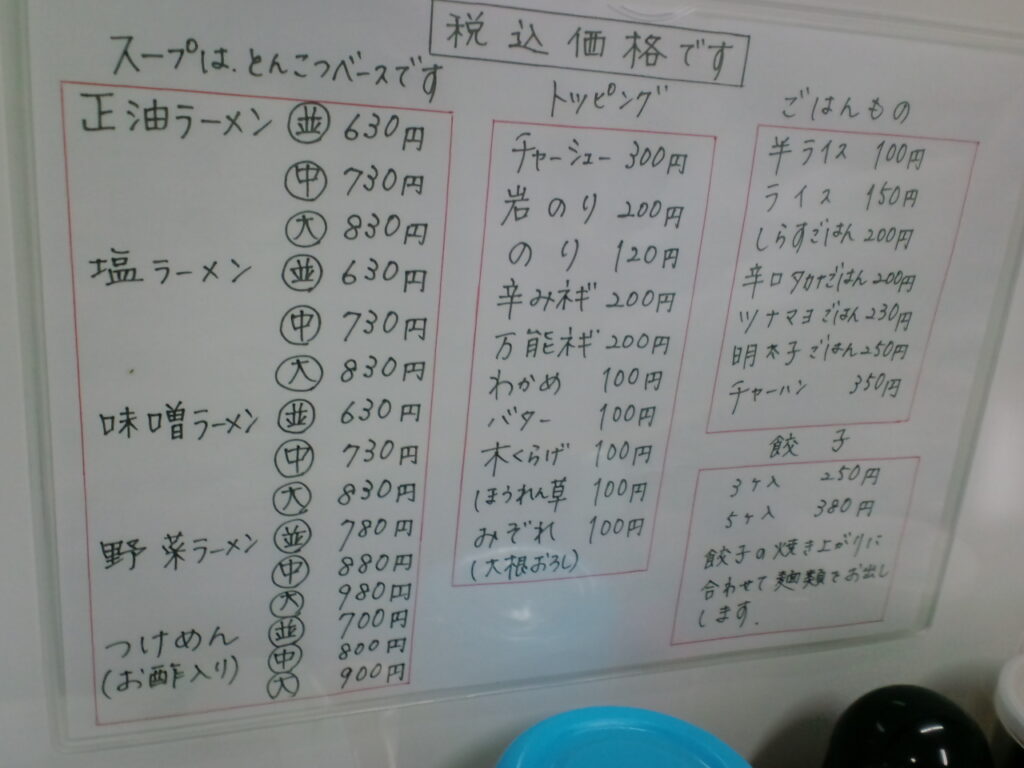 税込価格です
スープは、とんこつベースです
正油ラーメン 並 630円
中 730円
大 830円
塩ラーメン 並 630円
中 730円
大 830円
味噌ラーメン 並 630円
中 730円
大 830円
野菜ラーメン 並 780円
中 880円
大 980円
つけめん 並 700円
(お酢入り) 中 800円
大 900円
トッピング
チャーシュー 300円
岩のり 200円
のり 120円
辛みネギ 200円
万能ネギ 200円
わかめ 100円
バター 100円
木くらげ 100円
ほうれん草 100円
みぞれ 100円
(大根おろし)
ごはんもの
半ライス 100円
ライス 150円
しらすごはん 200円
辛口タカナごはん 200円
ツナマヨごはん 230円
明太子ごはん 250円
チャーハン 350円
餃子
3ケ入 250円
5ケ入 380円
餃子の焼き上がりに
合わせて麺類でお出し
します.